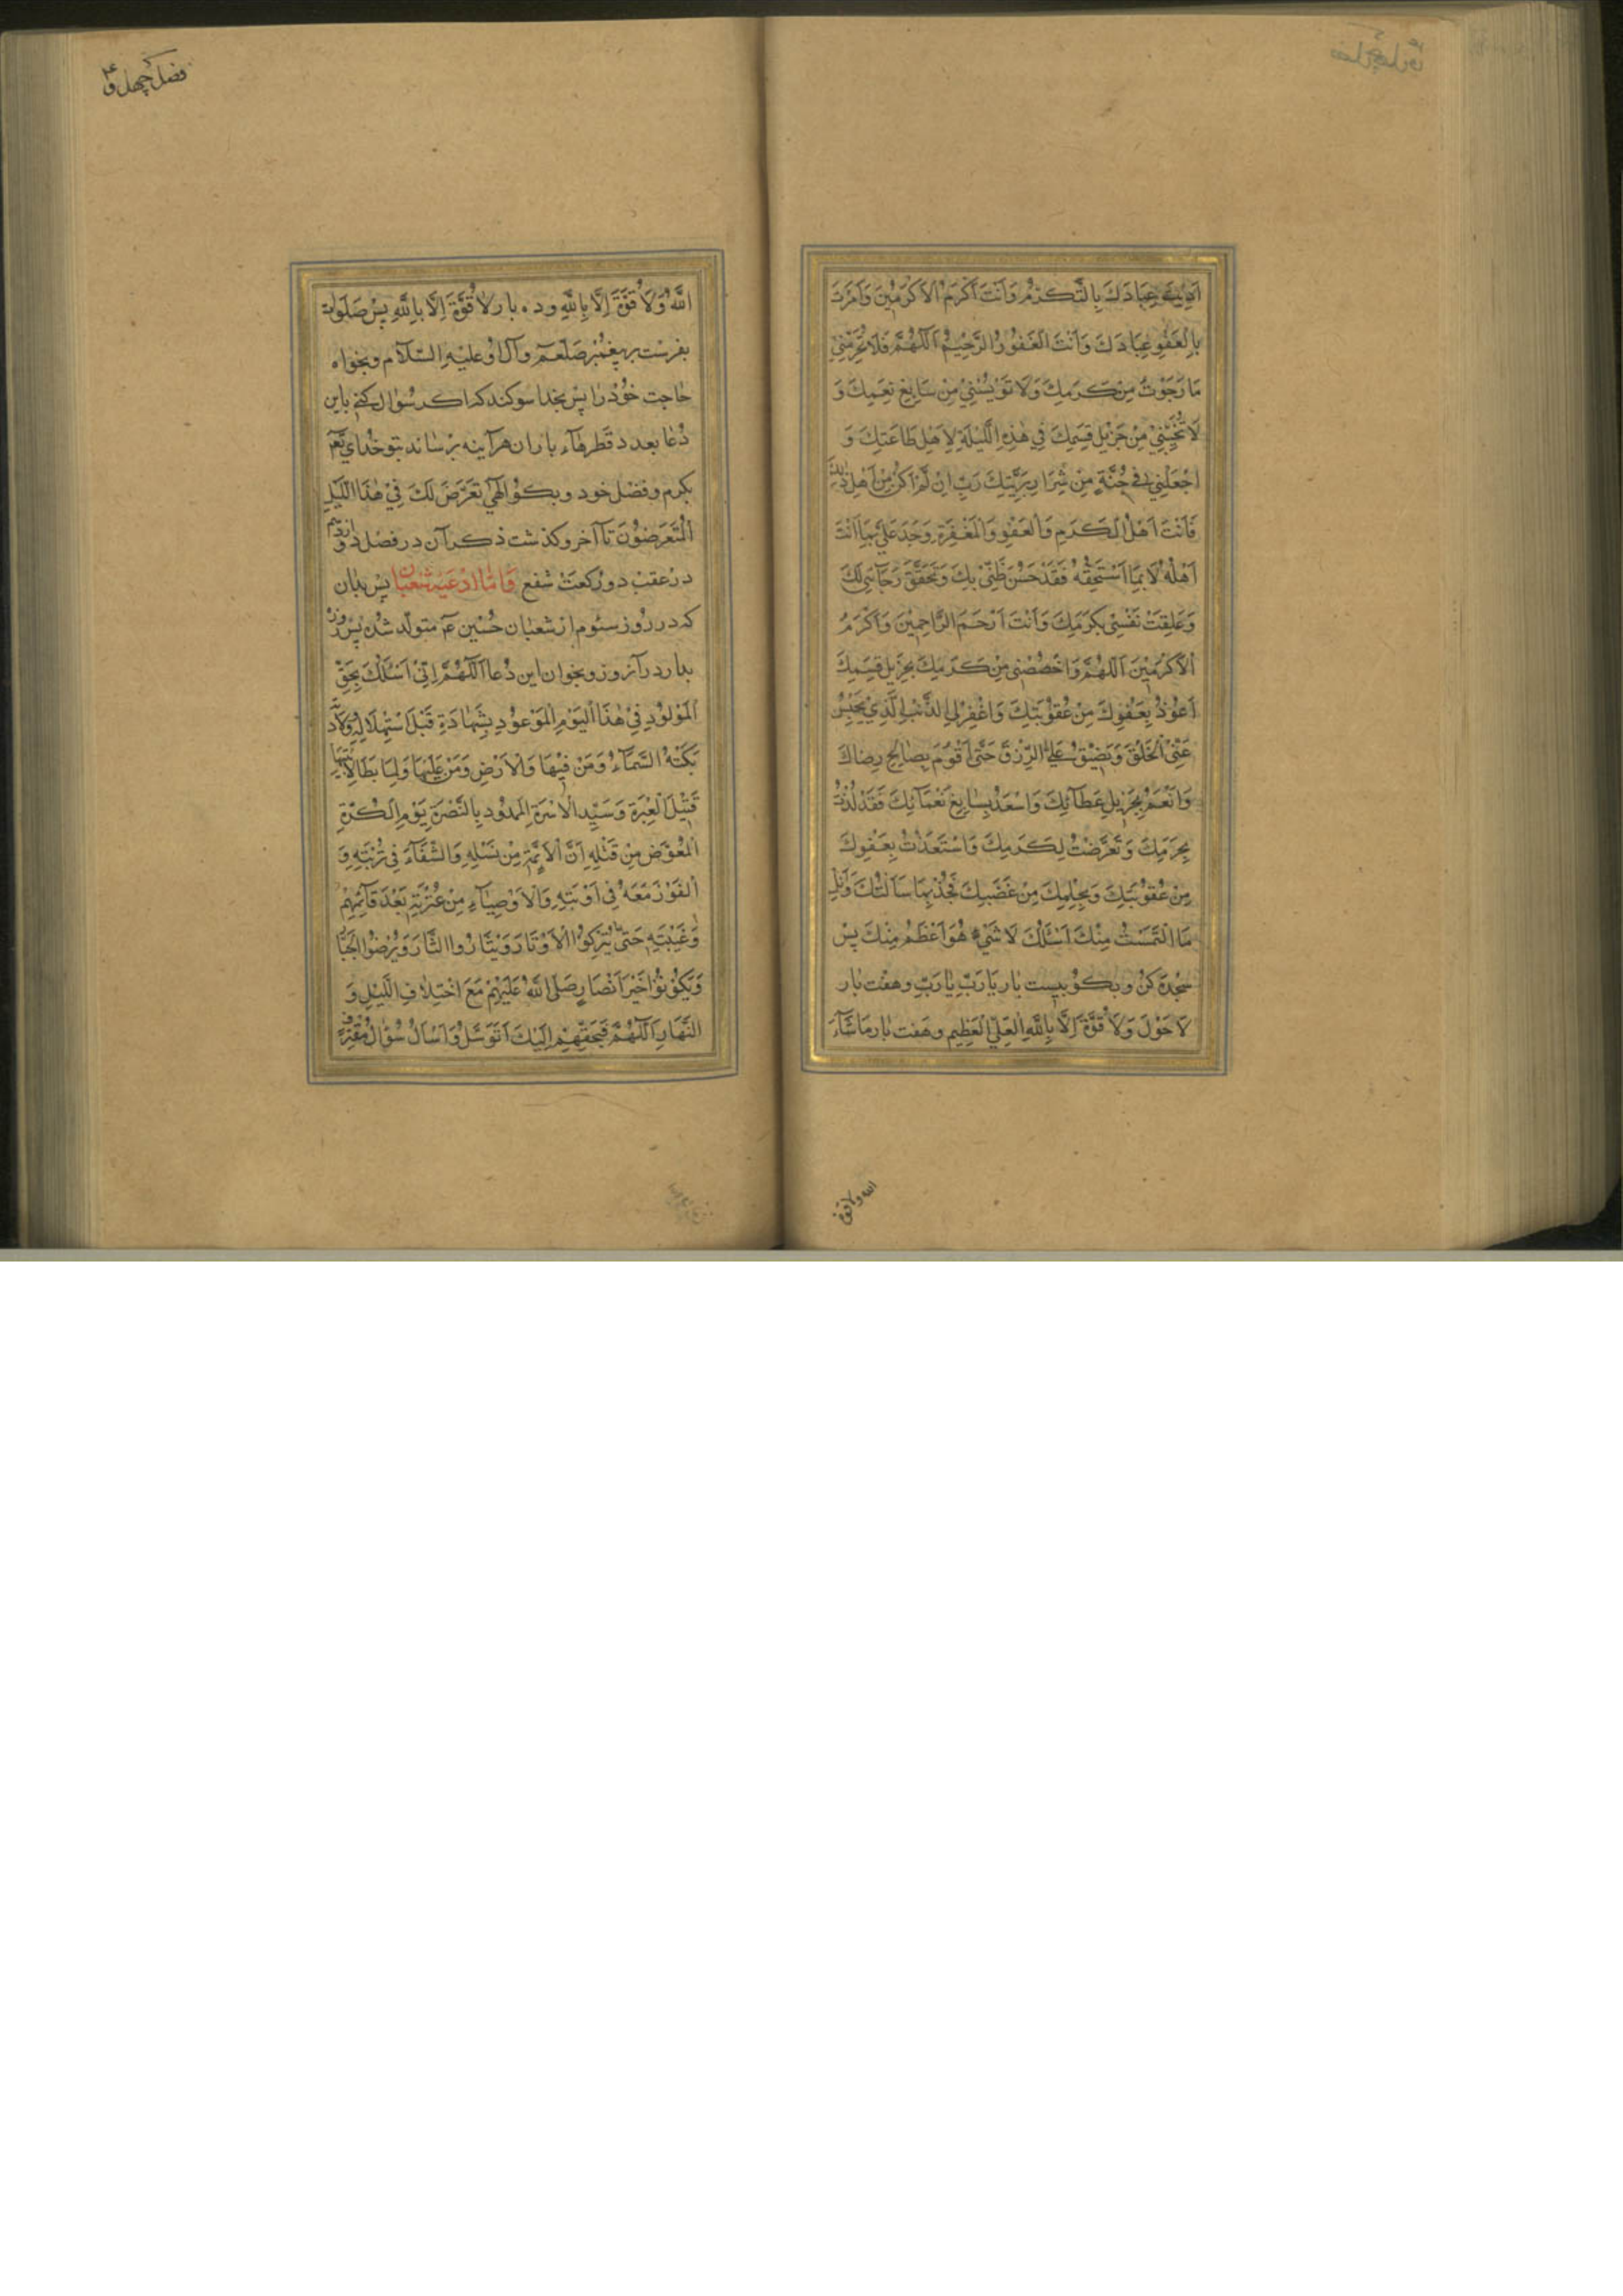 اَدَّبْتَ عِبَادَكَ بِالتَّكَرُّمِ وَاَنْتَ اَكْرَمُ الْاَكْرَمِيْنَ وَاَمَرْتَ
بِالْعَفْوِ عِبَادَكَ وَاَنْتَ الْغَفُورُ الرَّحِيْمُ اَللّٰهُمَّ فَلَا تَحْرِمْنِي
مَا رَجَوْتُ مِنْ كَرَمِكَ وَلَا تُؤْيِسْنِي مِنْ سَابِغِ نِعَمِكَ وَ
لَا تُخَيِّبْنِي مِنْ جَزِيْلِ قِسَمِكَ فِي هٰذِهِ اللَّيْلَةِ لِاَهْلِ طَاعَتِكَ وَ
اجْعَلْنِي فِي جُنَّةٍ مِنْ شِرَارِ بَرِيَّتِكَ رَبِّ اِنْ لَمْ اَكُنْ مِنْ اَهْلِ ذٰلِكَ
فَاَنْتَ اَهْلُ الْكَرَمِ وَالْعَفْوِ وَالْمَغْفِرَةِ وَجُدْ عَلَيَّ بِمَا اَنْتَ
اَهْلُهُ لَا بِمَا اَسْتَحِقُّهُ فَقَدْ حَسُنَ ظَنِّي بِكَ وَتَحَقَّقَ رَجَائِي لَكَ
وَعَلِقَتْ نَفْسِي بِكَرَمِكَ وَاَنْتَ اَرْحَمُ الرَّاحِمِيْنَ وَاَكْرَمُ
الْاَكْرَمِيْنَ اَللّٰهُمَّ وَاخْصُصْنِي مِنْ كَرَمِكَ بِجَزِيْلِ قِسَمِكَ
اَعُوْذُ بِعَفْوِكَ مِنْ عُقُوْبَتِكَ وَاغْفِرْ لِيَ الذَّنْبَ الَّذِيْ يَحْبِسُ
عَنِّي الْخُلُقَ وَيُضَيِّقُ عَلَيَّ الرِّزْقَ حَتّٰى اَقُوْمَ بِصَالِحِ رِضَاكَ
وَاَنْعَمَ بِجَزِيْلِ عَطَآئِكَ وَاَسْعَدَ بِسَابِغِ نَعْمَآئِكَ فَقَدْ لُذْتُ
بِحَرَمِكَ وَتَعَرَّضْتُ لِكَرَمِكَ وَاسْتَعَذْتُ بِعَفْوِكَ
مِنْ عُقُوْبَتِكَ وَبِحِلْمِكَ مِنْ غَضَبِكَ فَجُدْ بِمَا سَاَلْتُكَ وَاَنِلْ
مَا الْتَمَسْتُ مِنْكَ اَسْئَلُكَ لَا شَيْءٌ هُوَ اَعْظَمُ مِنْكَ پس
سجده كن و بكو بيست بار يَا رَبِّ يَا رَبِّ و هفت بار
لَا حَوْلَ وَلَا قُوَّةَ اِلَّا بِاللّٰهِ الْعَلِيِّ الْعَظِيمِ و هفت بار مَا شَآءَ
الله ولا قوة
فضل چهل و
اللّٰهُ وَلَا قُوَّةَ اِلَّا بِاللّٰهِ و ده بار لَا قُوَّةَ اِلَّا بِاللّٰهِ پس صلوات
بفرست بر پيغمبر صلعم و آل او عليه السلام و بخواه
حاجت خود را پس بخدا سوكند كه اكر سؤال كنى باين
دعا بعدد قطرهاء باران هرآينه برساند بتو خداي تع
بكرم و فضل خود و بكو اِلٰهِي تَعَرَّضَ لَكَ فِيْ هٰذَا اللَّيْلِ
الْمُتَعَرِّضُوْنَ تا آخر و كذشت ذكر آن در فصل
در عقب دو ركعت شفع وَاَمَّا ادعيه شعبان پس بدان
كه در روز سئوم از شعبان حُسَيْن ع متولد شده پس روزه
بدار در آن روز و بخوان اين دعا اَللّٰهُمَّ اِنِّيْ اَسْئَلُكَ بِحَقِّ
الْمَوْلُوْدِ فِيْ هٰذَا الْيَوْمِ الْمَوْعُوْدِ بِشَهَادَتِهِ قَبْلَ اسْتِهْلَالِهِ وَوِلَادَتِهِ
بَكَتْهُ السَّمَآءُ وَمَنْ فِيْهَا وَالْاَرْضُ وَمَنْ عَلَيْهَا وَلَمَّا يَطَأْ لَابَتَيْهَا
قَتِيْلِ الْعَبْرَةِ وَسَيِّدِ الْاُسْرَةِ الْمَمْدُوْدِ بِالنُّصْرَةِ يَوْمَ الْكَرَّةِ
الْمُعَوَّضِ مِنْ قَتْلِهِ اَنَّ الْاَئِمَّةَ مِنْ نَسْلِهِ وَالشِّفَآءَ فِي تُرْبَتِهِ وَ
الْفَوْزَ مَعَهُ فِي اَوْبَتِهِ وَالْاَوْصِيَآءِ مِنْ عِتْرَتِهِ بَعْدَ قَآئِمِهِمْ
وَغَيْبَتِهِ حَتّٰى يُدْرِكُوا الْاَوْتَارَ وَيَثْاَرُوا الثَّارَ وَيُرْضُوا الْجَبَّارَ
وَيَكُوْنُوْا خَيْرَ اَنْصَارٍ صَلَّى اللّٰهُ عَلَيْهِمْ مَعَ اخْتِلَافِ اللَّيْلِ وَ
النَّهَارِ اَللّٰهُمَّ فَبِحَقِّهِمْ اِلَيْكَ اَتَوَسَّلُ وَاَسْاَلُ سُؤَالَ مُقْتَرِفٍ